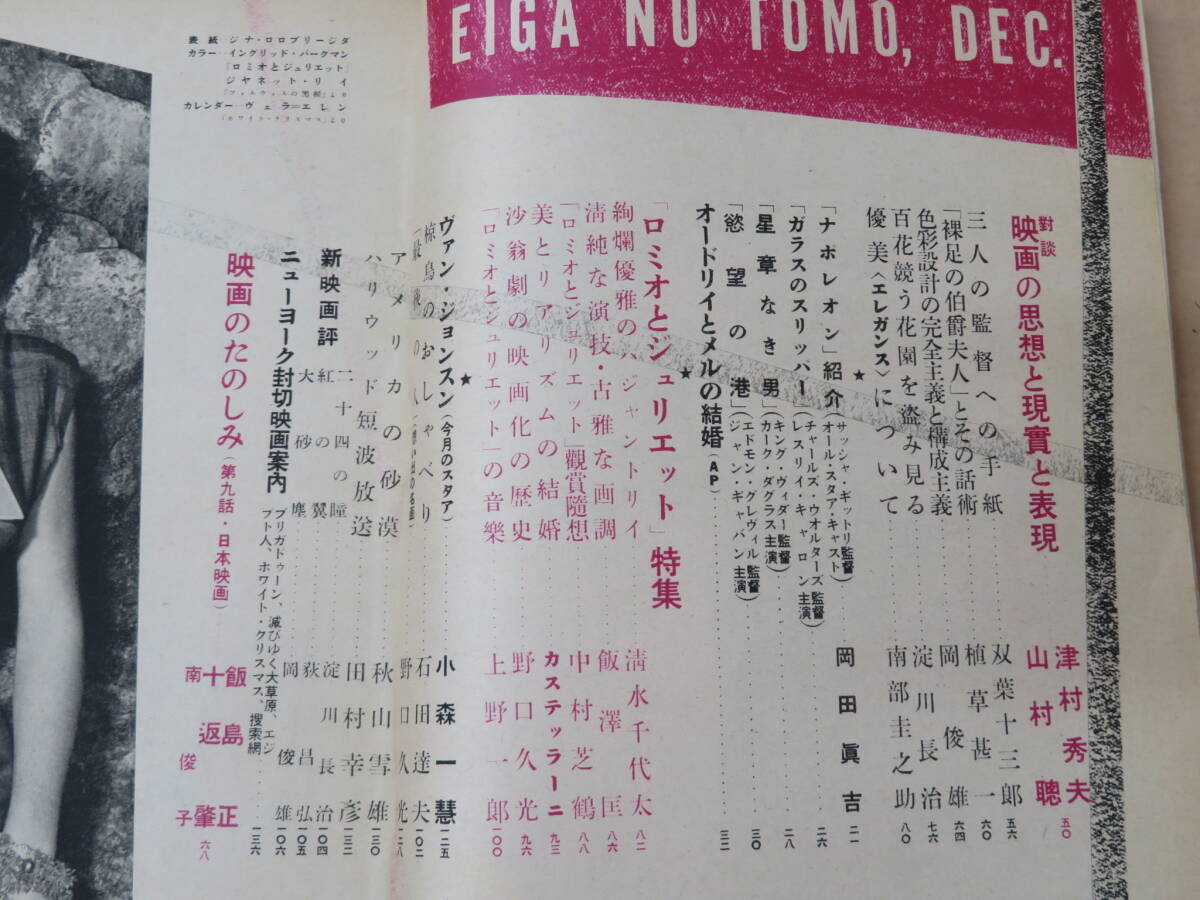 EIGA NO TOMO, DEC.
表紙…ジナ・ロロブリージダ
カラー…イングリッド・バークマン
「ロミオとジュリエット」
ジャネット・リイ
カレンダー…ヴェラ＝エレン
「ホワイト・クリスマス」より
對談 映画の思想と現實と表現 津村秀夫 山村聰 五〇
三人の監督への手紙 双葉十三郎 五六
「裸足の伯爵夫人」とその話術 植草甚一 六〇
色彩設計の完全主義と構成主義 岡俊雄 六四
百花競う花園を盗み見る 淀川長治 七六
優美〈エレガンス〉について 南部圭之助 八〇
★
「ナポレオン」紹介(サッシャ・ギットリ監督 オール・スタア・キャスト) 岡田眞吉 二一
「ガラスのスリッパー」(チャールズ・ウオルターズ監督 レスリイ・キャロン主演) 二六
「星章なき男」(キング・ヴィダー監督 カーク・ダグラス主演) 二八
「慾望の港」(エドモン・グレヴィル監督 ジャン・ギャバン主演) 三〇
オードリイとメルの結婚(AP) 三二
★
「ロミオとジュリエット」特集
絢爛優雅のパジャントリイ 清水千代太 八二
清純な演技・古雅な画調 飯澤匡 八六
「ロミオとジュリエット」觀賞隨想 中村芝鶴 八八
美とリアリズムの結婚 カステッラーニ 九三
沙翁劇の映画化の歴史 野口久光 九六
「ロミオとジュリエット」の音樂 上野一郎 一〇〇
★
ヴァン・ジョンスン(今月のスタア) 小森一慧 一二五
椋鳥のおしゃべり 石田達夫 一〇二
野口久光 一二八
アメリカの砂漠 秋山雪雄 一三〇
ハリウッド短波放送 田村幸彦 一三二
新映画評
二十四の瞳 淀川長治 一〇四
紅の翼 荻昌弘 一〇五
大砂塵 岡俊雄 一〇六
ニューヨーク封切映画案内 ブリガドゥーン、滅びゆく大草原、エジプト人、ホワイト・クリスマス、捜索網 一三六
映画のたのしみ(第九話・日本映画) 飯島正 十返肇 南俊子 六八